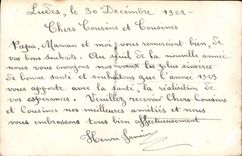 Ludes, le 30 Décembre 1922
Chers Cousins et Cousines
Papa, Maman et moi, vous remercient bien, de
vos bons souhaits. Au seuil de la nouvelle année
nous vous envoyons nos vœux les plus sincères
de bonne santé et souhaitons que l'année 1923
vous apporte avec la santé, la réalisation de
vos espérances. Veuillez recevoir Chers Cousins
et Cousines nos meilleures amitiés et nous
vous embrassons tous bien affectueusement
Henri